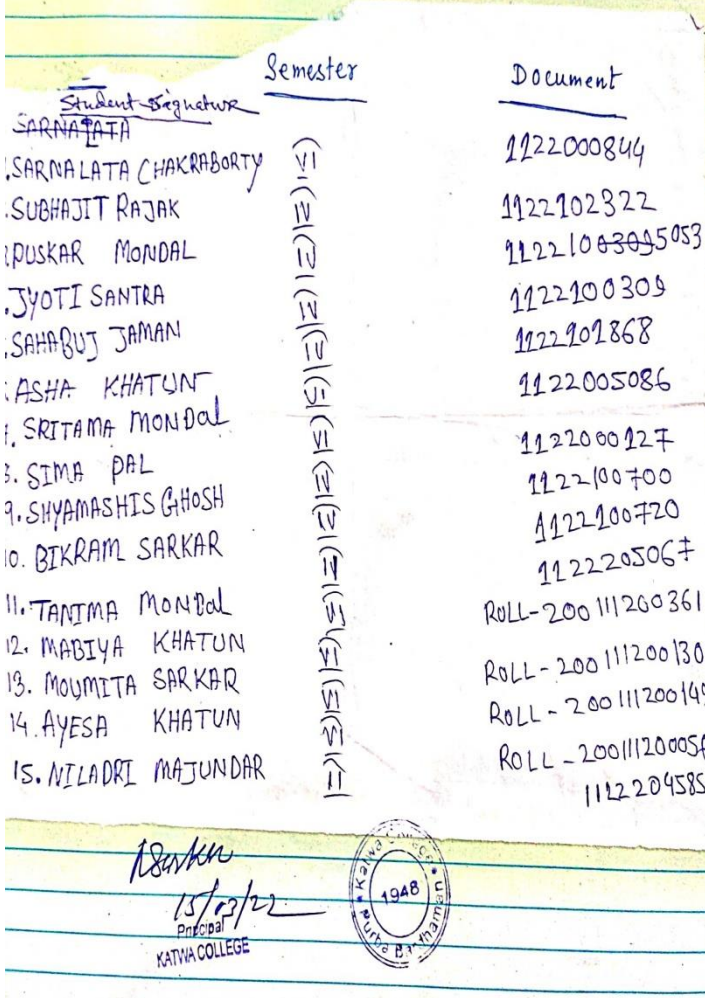 Semester Document
Student Signature
SARNALATA
SARNALATA CHAKRABORTY VI 1122000844
SUBHAJIT RAJAK IV 1122102322
PUSKAR MONDAL IV 1122100303 5053
JYOTI SANTRA IV 1122100309
SAHABUJ JAMAN IV 1122101868
ASHA KHATUN VI 1122005086
SRITAMA MONDAL VI 1122000127
SIMA PAL IV 1122100700
9. SHYAMASHIS GHOSH IV 1122100720
10. BIKRAM SARKAR II 1122205067
11. TANIMA MONDAL VI ROLL-200111200361
12. MABIYA KHATUN VI
13. MOUMITA SARKAR VI ROLL-200111200130
14. AYESA KHATUN VI ROLL-20011120014
ROLL-20011120005
15. NILADRI MAJUNDAR II 1122204585
15/03/22
Principal
KATWA COLLEGE
Katwa College
1948
Purba Bardhaman